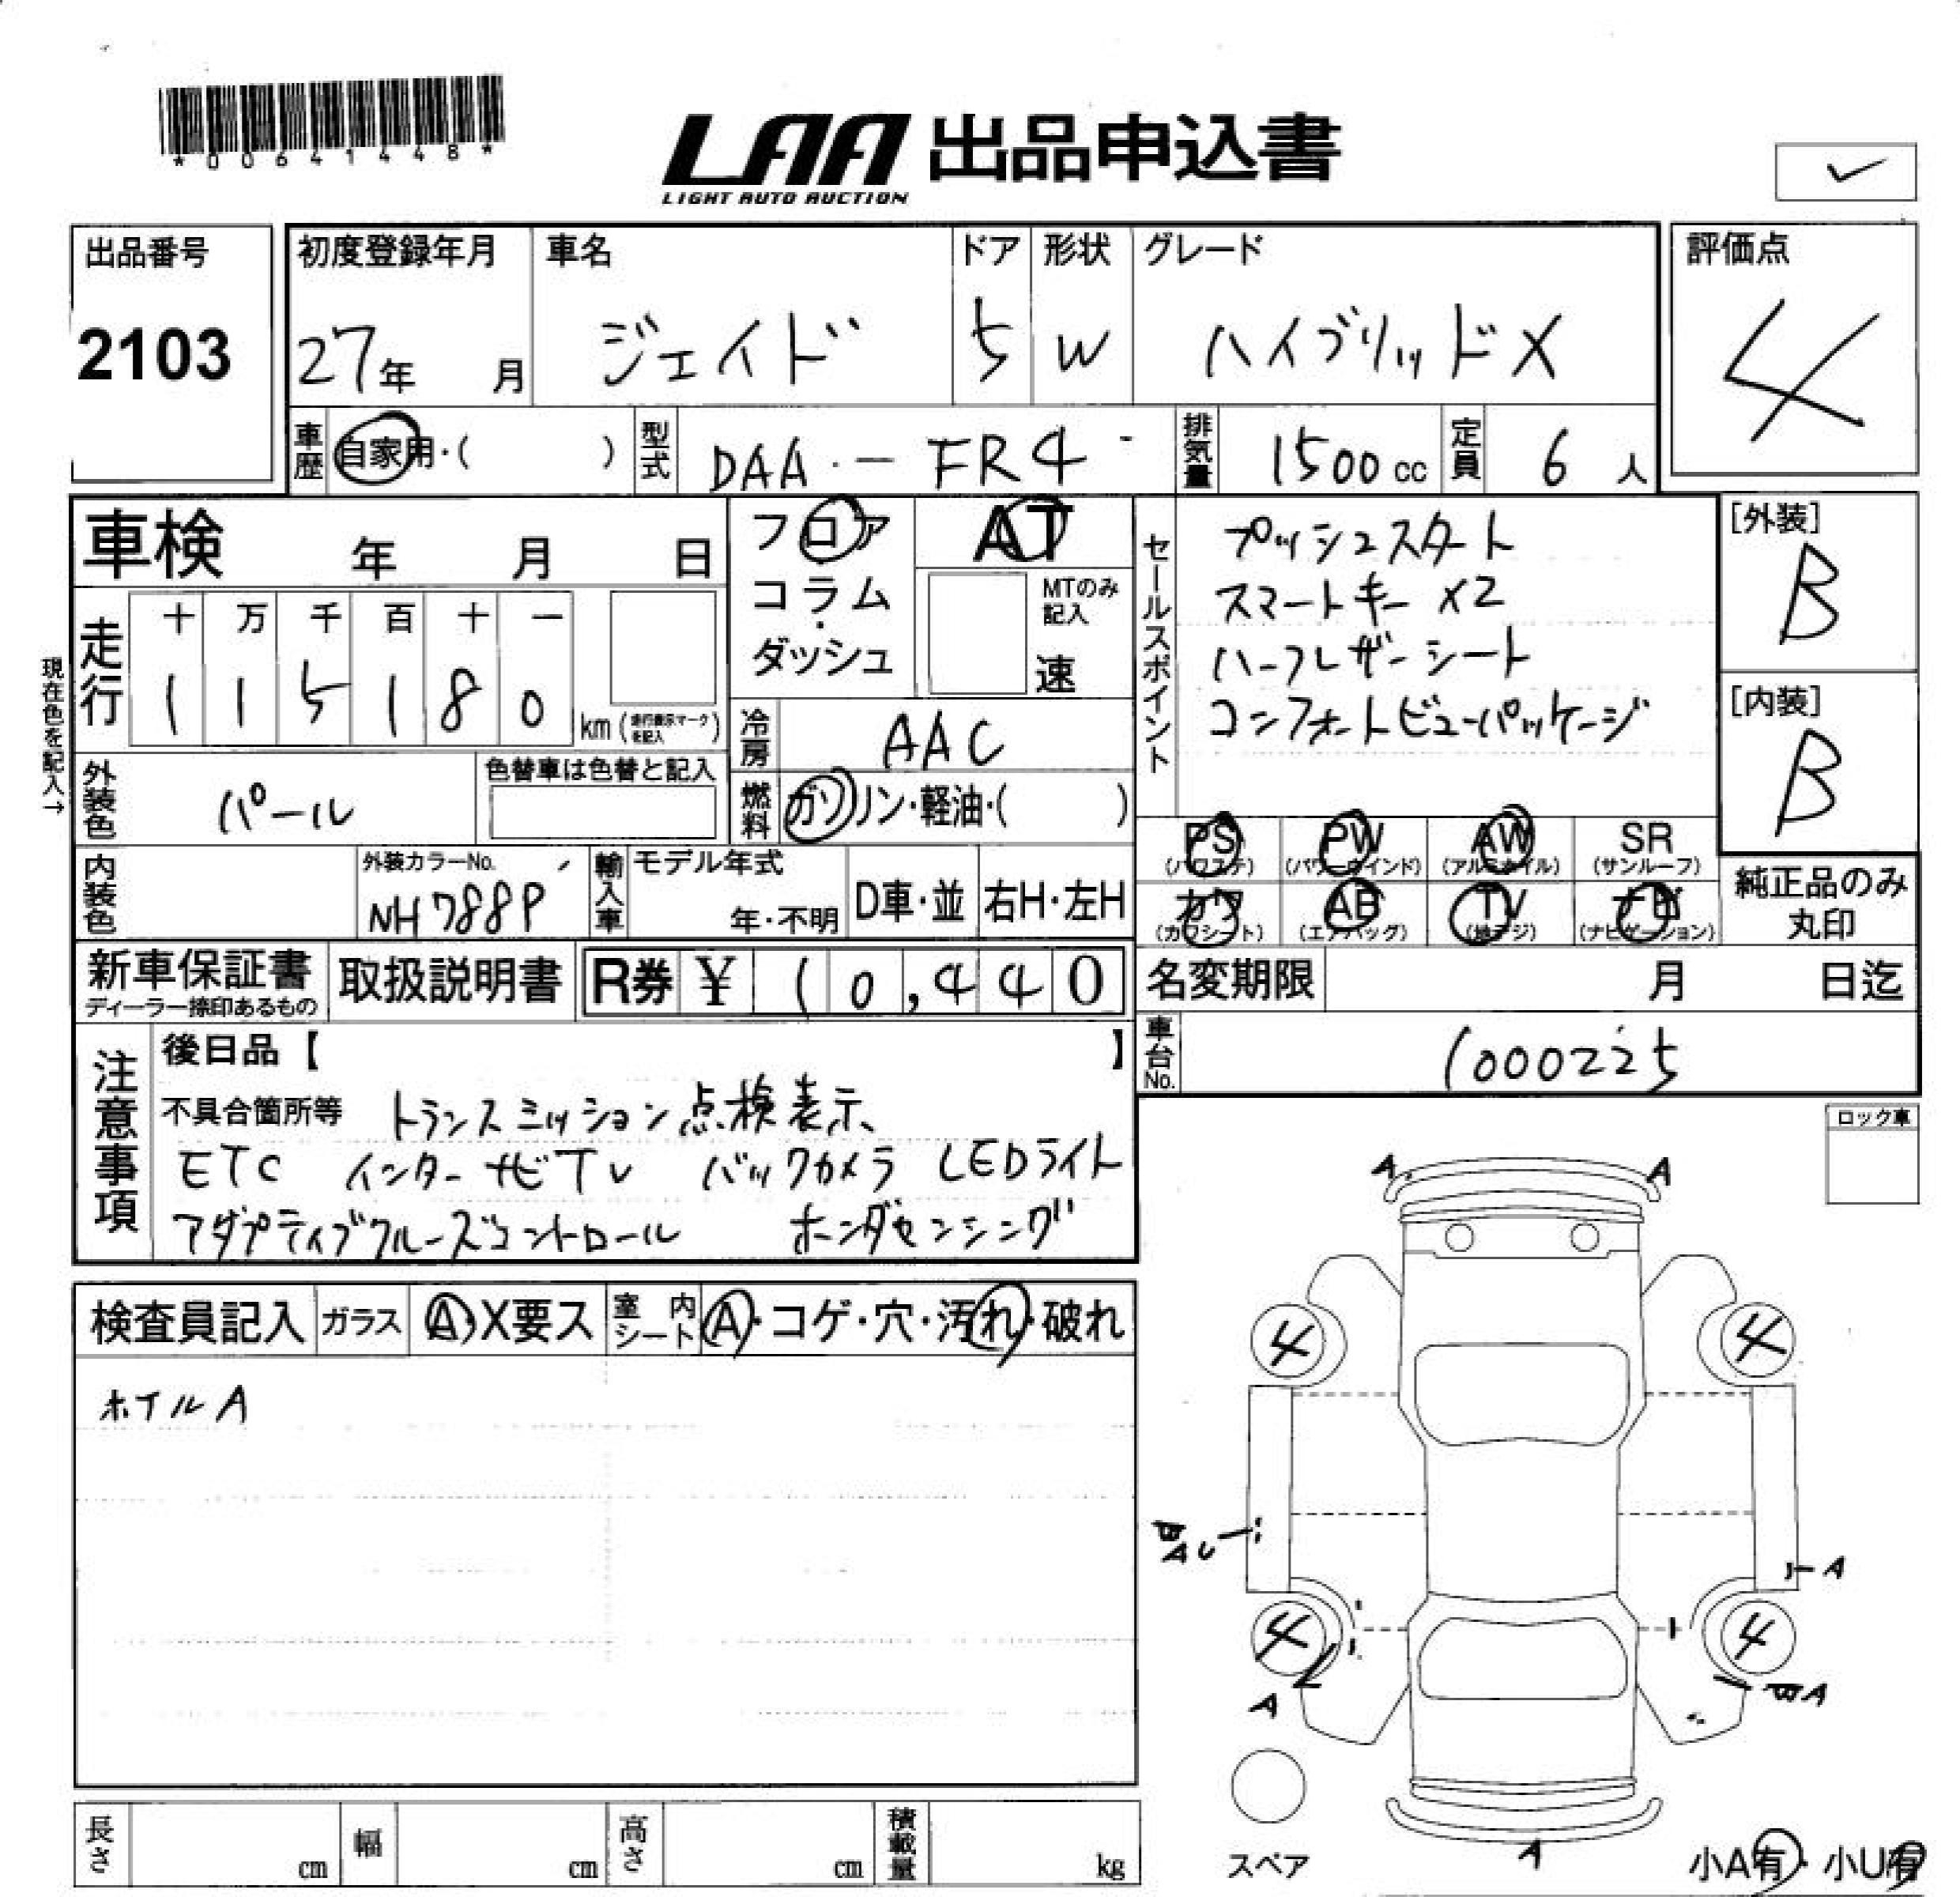 *00641448*
LAA 出品申込書
LIGHT AUTO AUCTION
出品番号
2103
初度登録年月
27年 月
車名
ジェイド
ドア
5
形状
W
グレード
ハイブリッドX
評価点
4
車歴
自家用・( )
型式
DAA - FR4
排気量
1500 cc
定員
6 人
車検 年 月 日
フロア
コラム
ダッシュ
AT
MTのみ
記入
速
セールスポイント
プッシュスタート
スマートキー X2
ハーフレザーシート
コンフォートビューパッケージ
[外装]
B
[内装]
B
現在色を記入→
走行
十 万 千 百 十 一
1 1 5 1 8 0
km (走行表示マークを記入)
冷房
AAC
外装色
パール
色替車は色替と記入
燃料
ガソリン・軽油・( )
PS
(パワステ)
PW
(パワーウインド)
AW
(アルミホイル)
SR
(サンルーフ)
カワ
(カワシート)
AB
(エアバッグ)
TV
(地デジ)
ナビ
(ナビゲーション)
純正品のみ
丸印
内装色
外装カラーNo.
NH788P
輸入車
モデル年式
年・不明
D車・並
右H・左H
新車保証書
ディーラー捺印あるもの
取扱説明書
R券 ¥ 10,440
名変期限 月 日迄
車台No.
1000225
注意事項
後日品【 】
不具合箇所等 トランスミッション点検表示、
ETC インターナビTV バックカメラ LEDライト
アダプティブクルーズコントロール ホンダセンシング
ロック車
検査員記入
ガラス
A・X要ス
室内
シート
A・コゲ・穴・汚れ・破れ
ホイルA
A A
4 4
B
AU
A
4 4
A
BA
スペア
A
小A有・小U有
長さ cm
幅 cm
高さ cm
積載量 kg